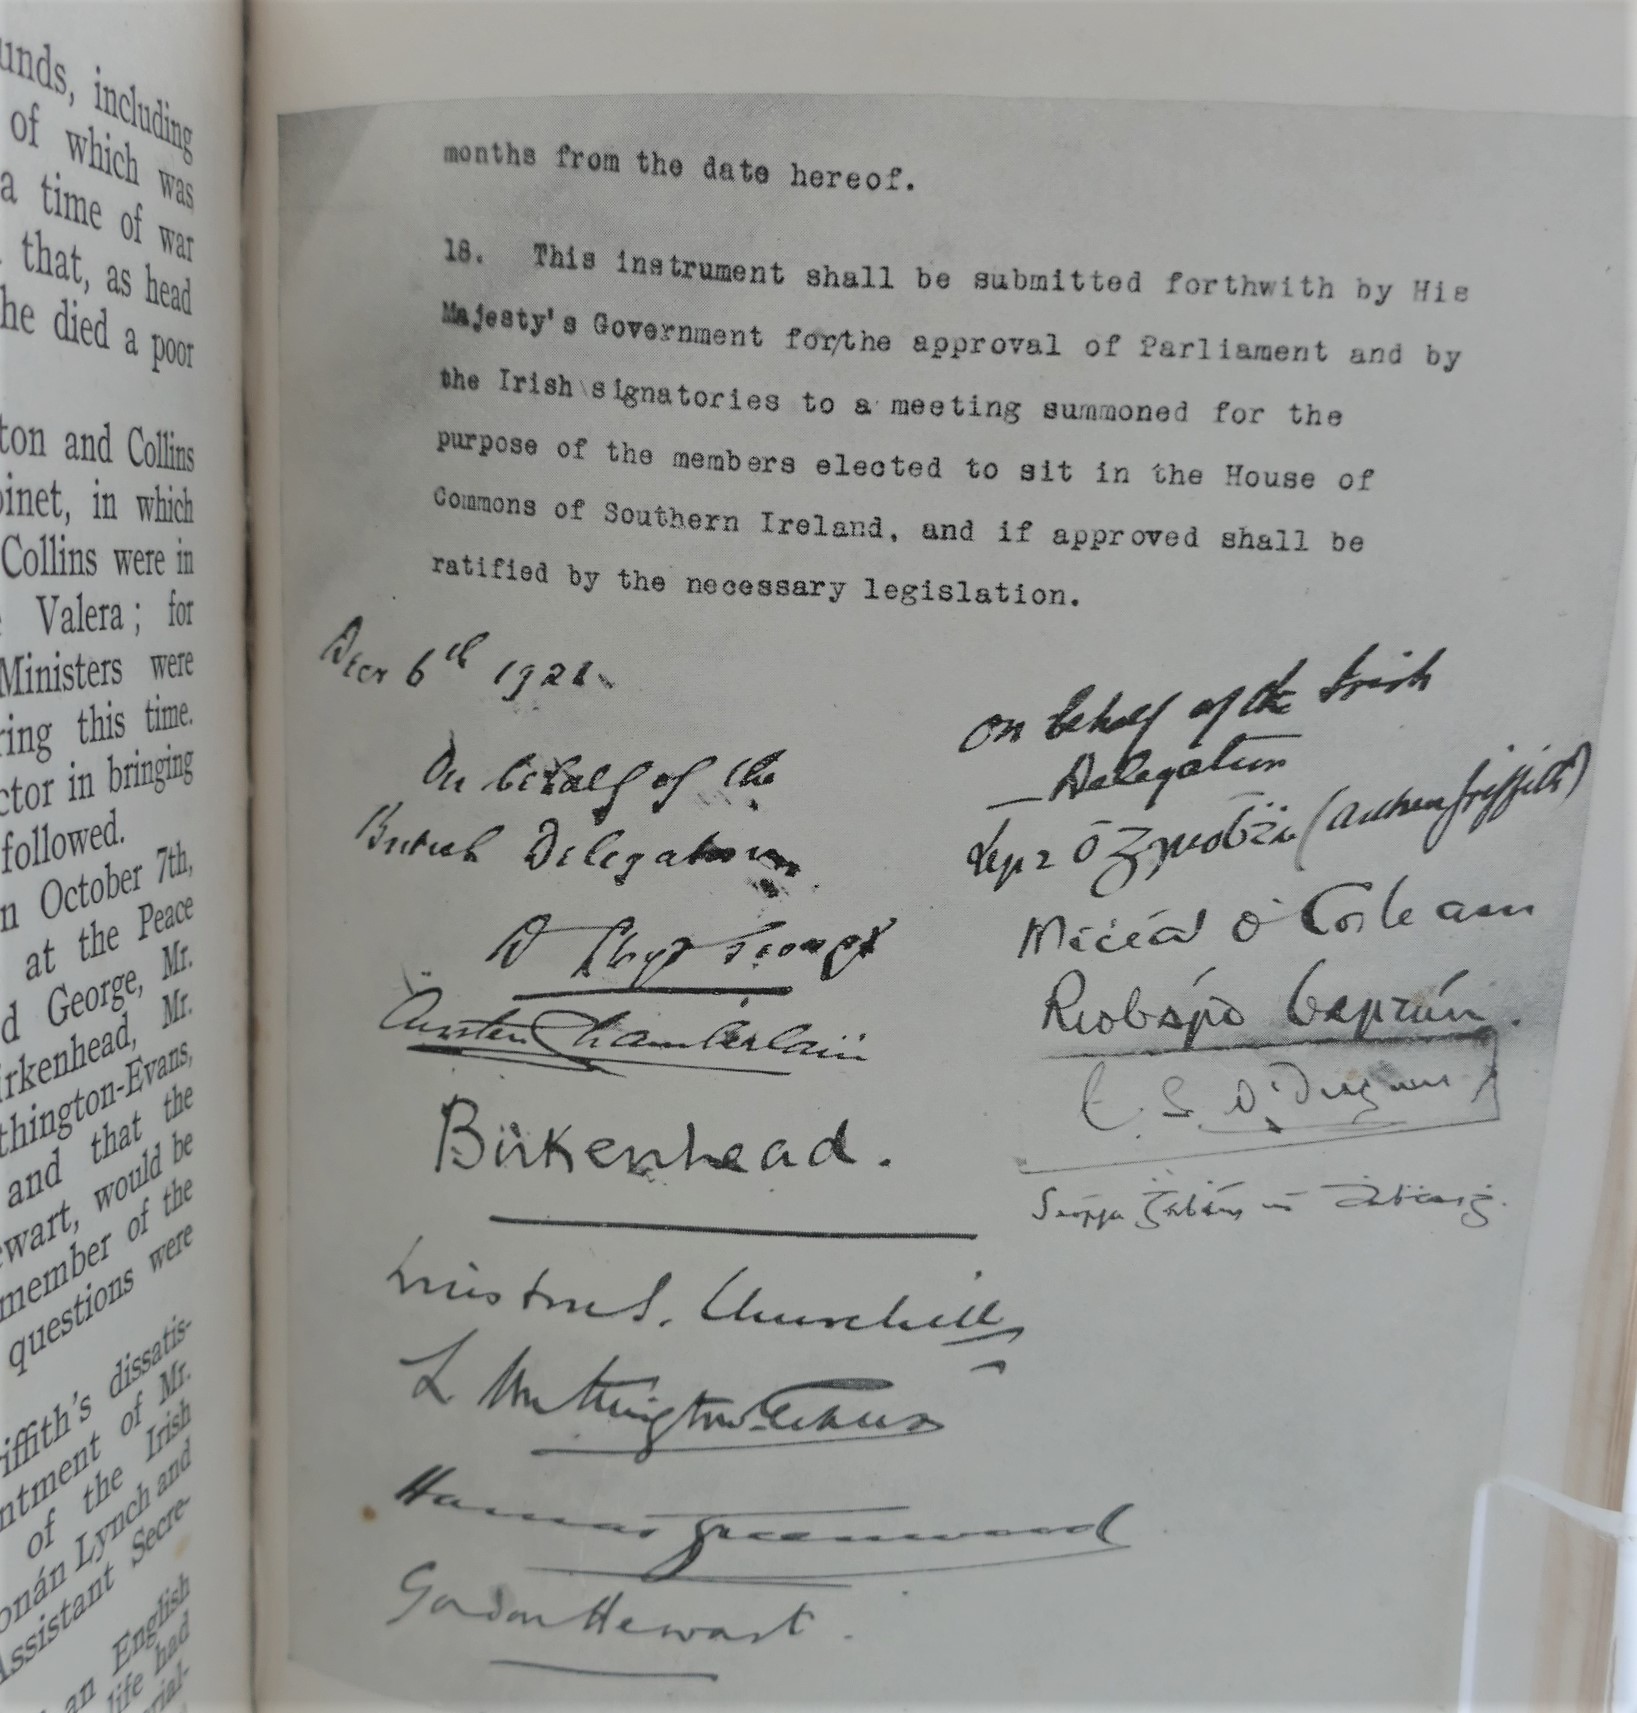 unds, including
of which was
a time of war
that, as head
he died a poor
ton and Collins
binet, in which
Collins were in
Valera ; for
Ministers were
ring this time.
ctor in bringing
followed.
n October 7th,
at the Peace
d George, Mr.
irkenhead, Mr.
thington-Evans,
and that the
ewart, would be
member of the
questions were
riffith's dissatis-
ntment of Mr.
of the Irish
onán Lynch and
Assistant Secre-
an English
life had
rial-
months from the date hereof.
18. This instrument shall be submitted forthwith by His
Majesty's Government for/the approval of Parliament and by
the Irish signatories to a meeting summoned for the
purpose of the members elected to sit in the House of
Commons of Southern Ireland, and if approved shall be
ratified by the necessary legislation.
Decr 6th 1921.
On behalf of the
British Delegation
D Lloyd George
Austen Chamberlain
Birkenhead.
Winston S. Churchill
L Worthington-Evans
Hamar Greenwood
Gordon Hewart.
On behalf of the Irish
Delegation
Art Ó Gríobhtha (Arthur Griffith)
Míceál Ó Coileáin
Riobárd Bartún.
E. S. Ó Dugain